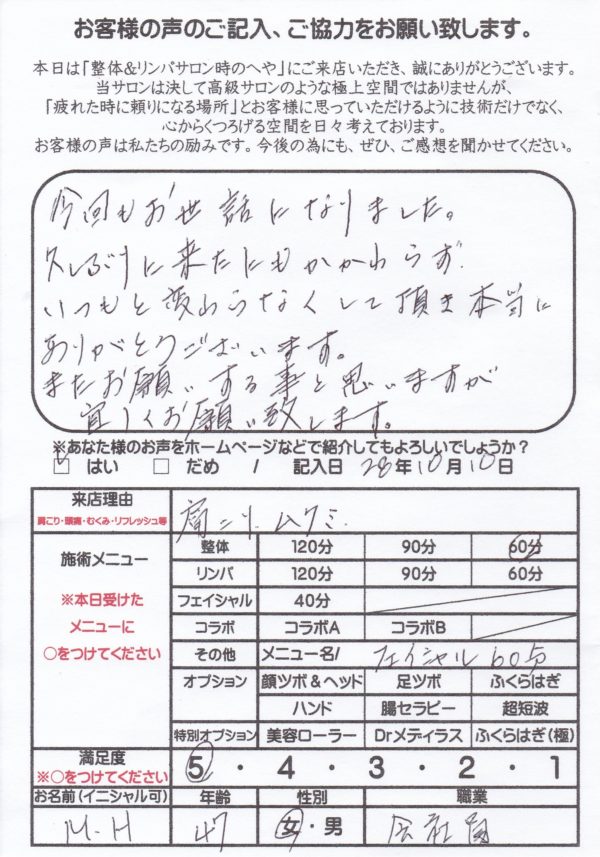 お客様の声のご記入、ご協力をお願い致します。
本日は「整体&リンパサロン時のへや」にご来店いただき、誠にありがとうございます。
当サロンは決して高級サロンのような極上空間ではありませんが、
「疲れた時に頼りになる場所」とお客様に思っていただけるように技術だけでなく、
心からくつろげる空間を日々考えております。
お客様の声は私たちの励みです。今後の為にも、ぜひ、ご感想を聞かせてください。
今回もお世話になりました。
久しぶりに来たにもかかわらず
いつもと変わらなくして頂き本当に
ありがとうございます。
またお願いする事と思いますが
宜しくお願い致します。
※あなた様のお声をホームページなどで紹介してもよろしいでしょうか?
□ はい □ だめ / 記入日 28年10月10日
来店理由 肩こり、ムクミ
肩こり・頭痛・むくみ・リフレッシュ等
施術メニュー 整体 120分 90分 60分
リンパ 120分 90分 60分
※本日受けた フェイシャル 40分
メニューに コラボ コラボA コラボB
○をつけてください その他 メニュー名/ フェイシャル60分
オプション 顔ツボ&ヘッド 足ツボ ふくらはぎ
ハンド 腸セラピー 超短波
特別オプション 美容ローラー Drメディラス ふくらはぎ(極)
満足度 5・4・3・2・1
※○をつけてください
お名前(イニシャル可) 年齢 性別 職業
M・H 47 女・男 会社員